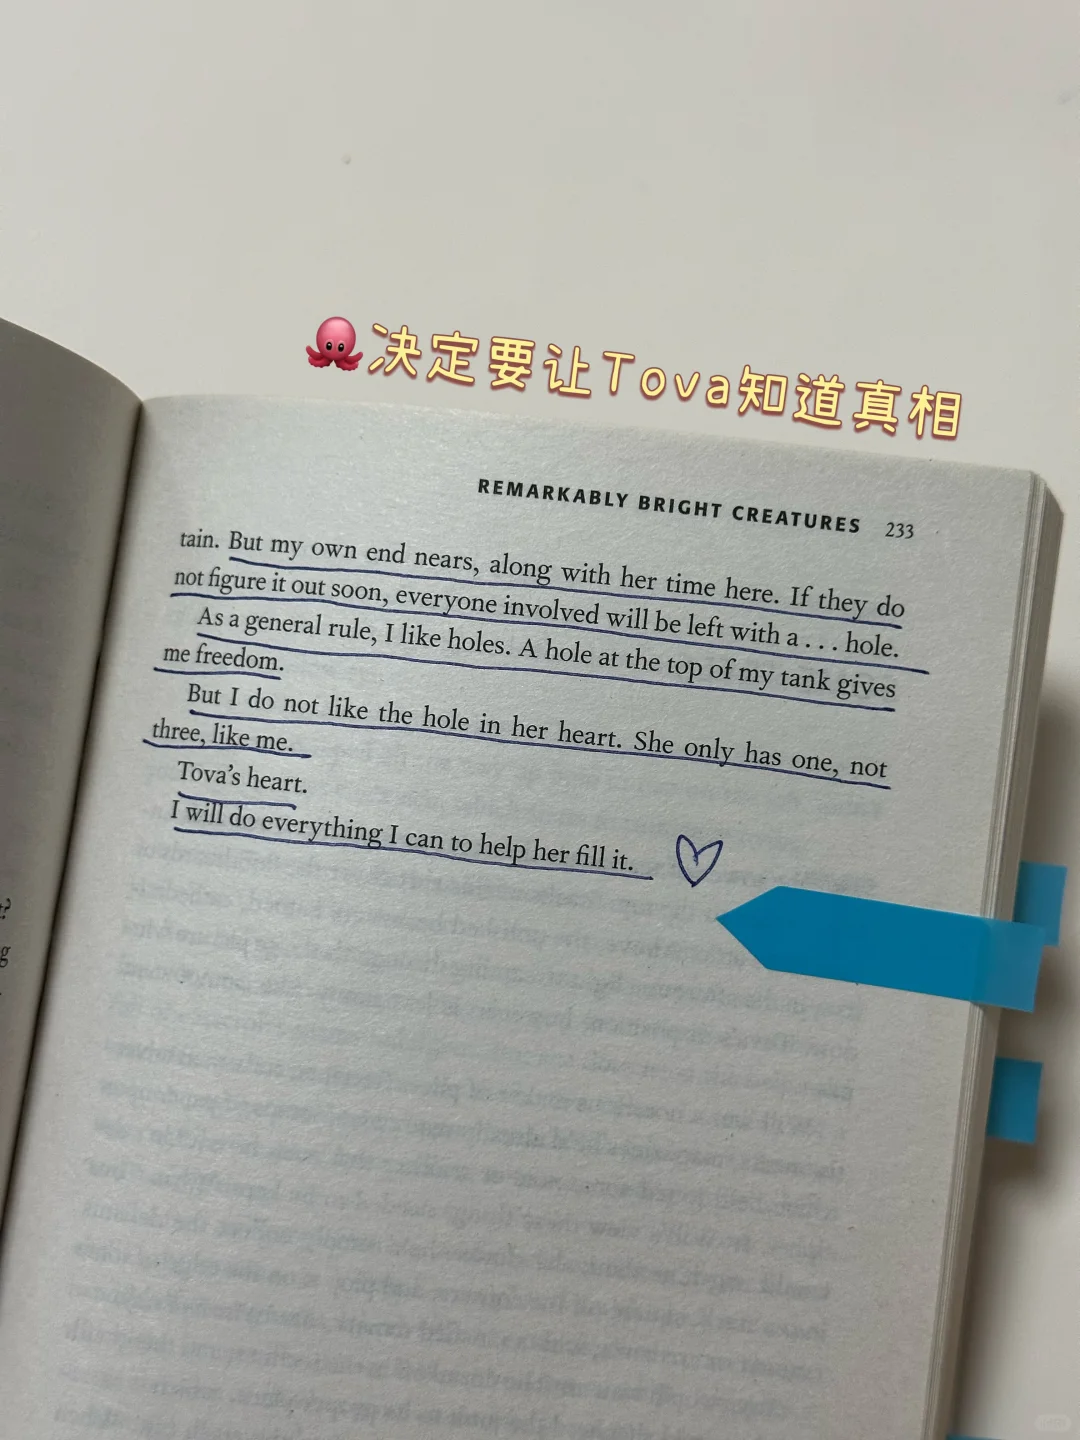 决定要让Tova知道真相
REMARKABLY BRIGHT CREATURES 233
tain. But my own end nears, along with her time here. If they do
not figure it out soon, everyone involved will be left with a . . . hole.
As a general rule, I like holes. A hole at the top of my tank gives
me freedom.
But I do not like the hole in her heart. She only has one, not
three, like me.
Tova’s heart.
I will do everything I can to help her fill it.
?
g